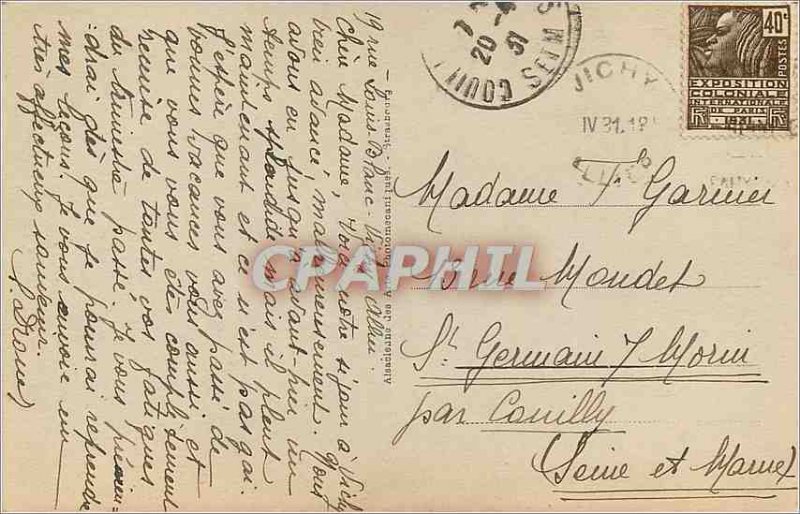 19 rue Louis Blanc - Vichy Allier
Chère Madame, Voici notre séjour à Vichy
bien avancé, malheureusement. Nous
avons eu jusqu'à avant-hier un
temps splendide mais il pleut
maintenant et ce n'est pas gai.
J'espère que vous avez passé de
bonnes vacances vous aussi et
que vous vous êtes complètement
remise de toutes vos fatigues
du trimestre passé. Je vous prévien=
=drai dès que je pourrai reprendre
mes leçons. Je vous envoie un
très affectueux souvenir.
Alsacienne des Arts Photomécaniques - Strasbourg
COUILLY
20 -4
31
SEINE ET M
VICHY
IV 31.19
ALLIER
40c
POSTES
EXPOSITION
COLONIALE
INTERNATIONALE
DE PARIS
1931
CPARHIL
Madame F Garnier
rue Maudet
St Germain s/ Morin
par Couilly
(Seine et Marne)